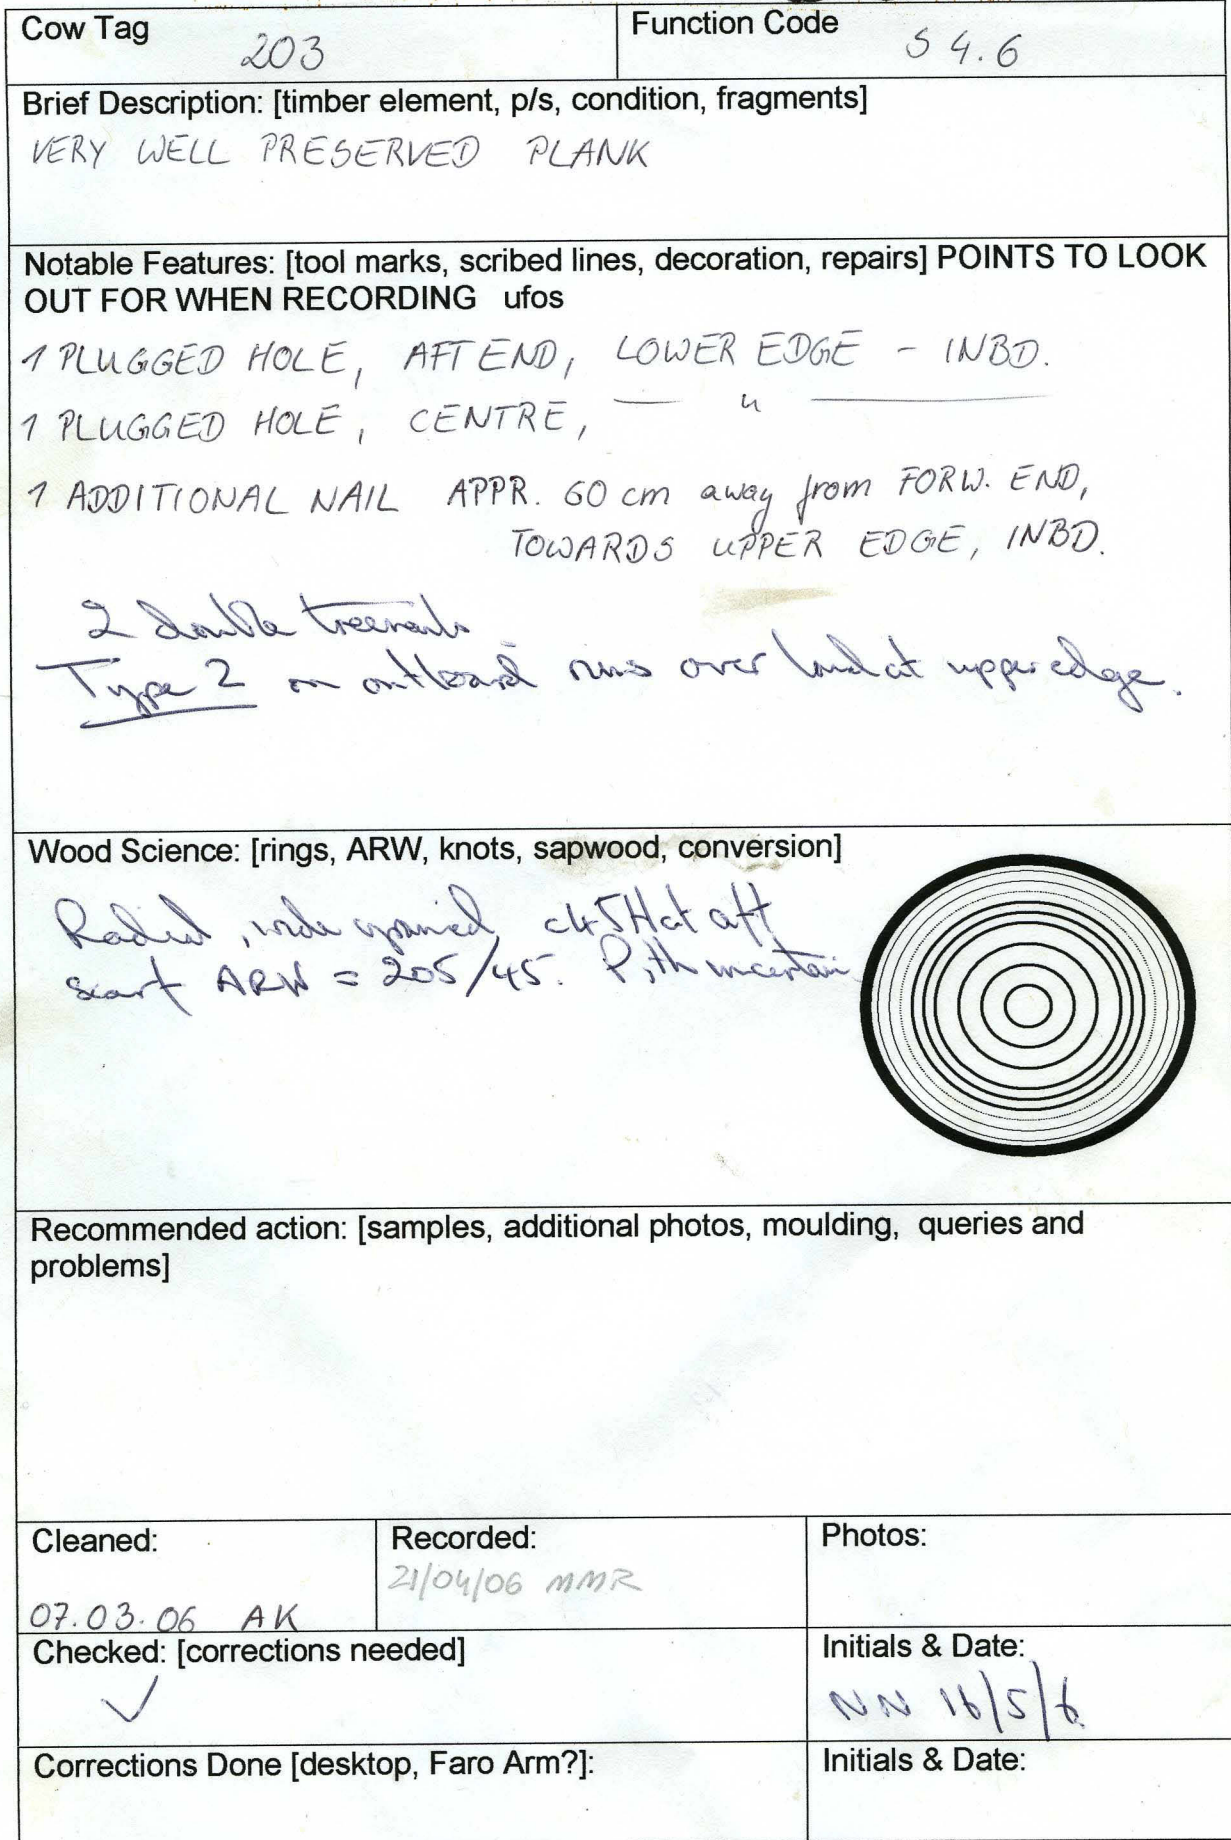 Cow Tag
203
Function Code
S 4.6
Brief Description: [timber element, p/s, condition, fragments]
VERY WELL PRESERVED PLANK
Notable Features: [tool marks, scribed lines, decoration, repairs] POINTS TO LOOK
OUT FOR WHEN RECORDING ufos
1 PLUGGED HOLE, AFT END, LOWER EDGE - INBD.
1 PLUGGED HOLE, CENTRE, — " —
1 ADDITIONAL NAIL APPR. 60 cm away from FORW. END,
TOWARDS UPPER EDGE, INBD.
2 double treenails
Type 2 on outboard runs over land at upper edge.
Wood Science: [rings, ARW, knots, sapwood, conversion]
Radial, wide grained, at aft
scarf ARW = 205/45. Pith uncertain
Recommended action: [samples, additional photos, moulding, queries and
problems]
Cleaned:
07.03.06 AK
Recorded:
21/04/06 MMR
Photos:
Checked: [corrections needed]
✓
Initials & Date:
NN 16/5/6
Corrections Done [desktop, Faro Arm?]:
Initials & Date: